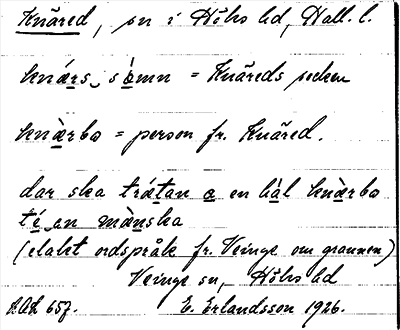 Knäred, sn i Höks hd, Hall. l.
knǽrs sòmn = Knäreds socken
knæ̀rbo = person fr. Knäred.
dar ska trǽtan a en hàl knæ̀rbo
té en mànska
(elakt ordspråk fr. Veinge om grannen)
Veinge sn, Höks hd
657. E. Erlandsson 1926.